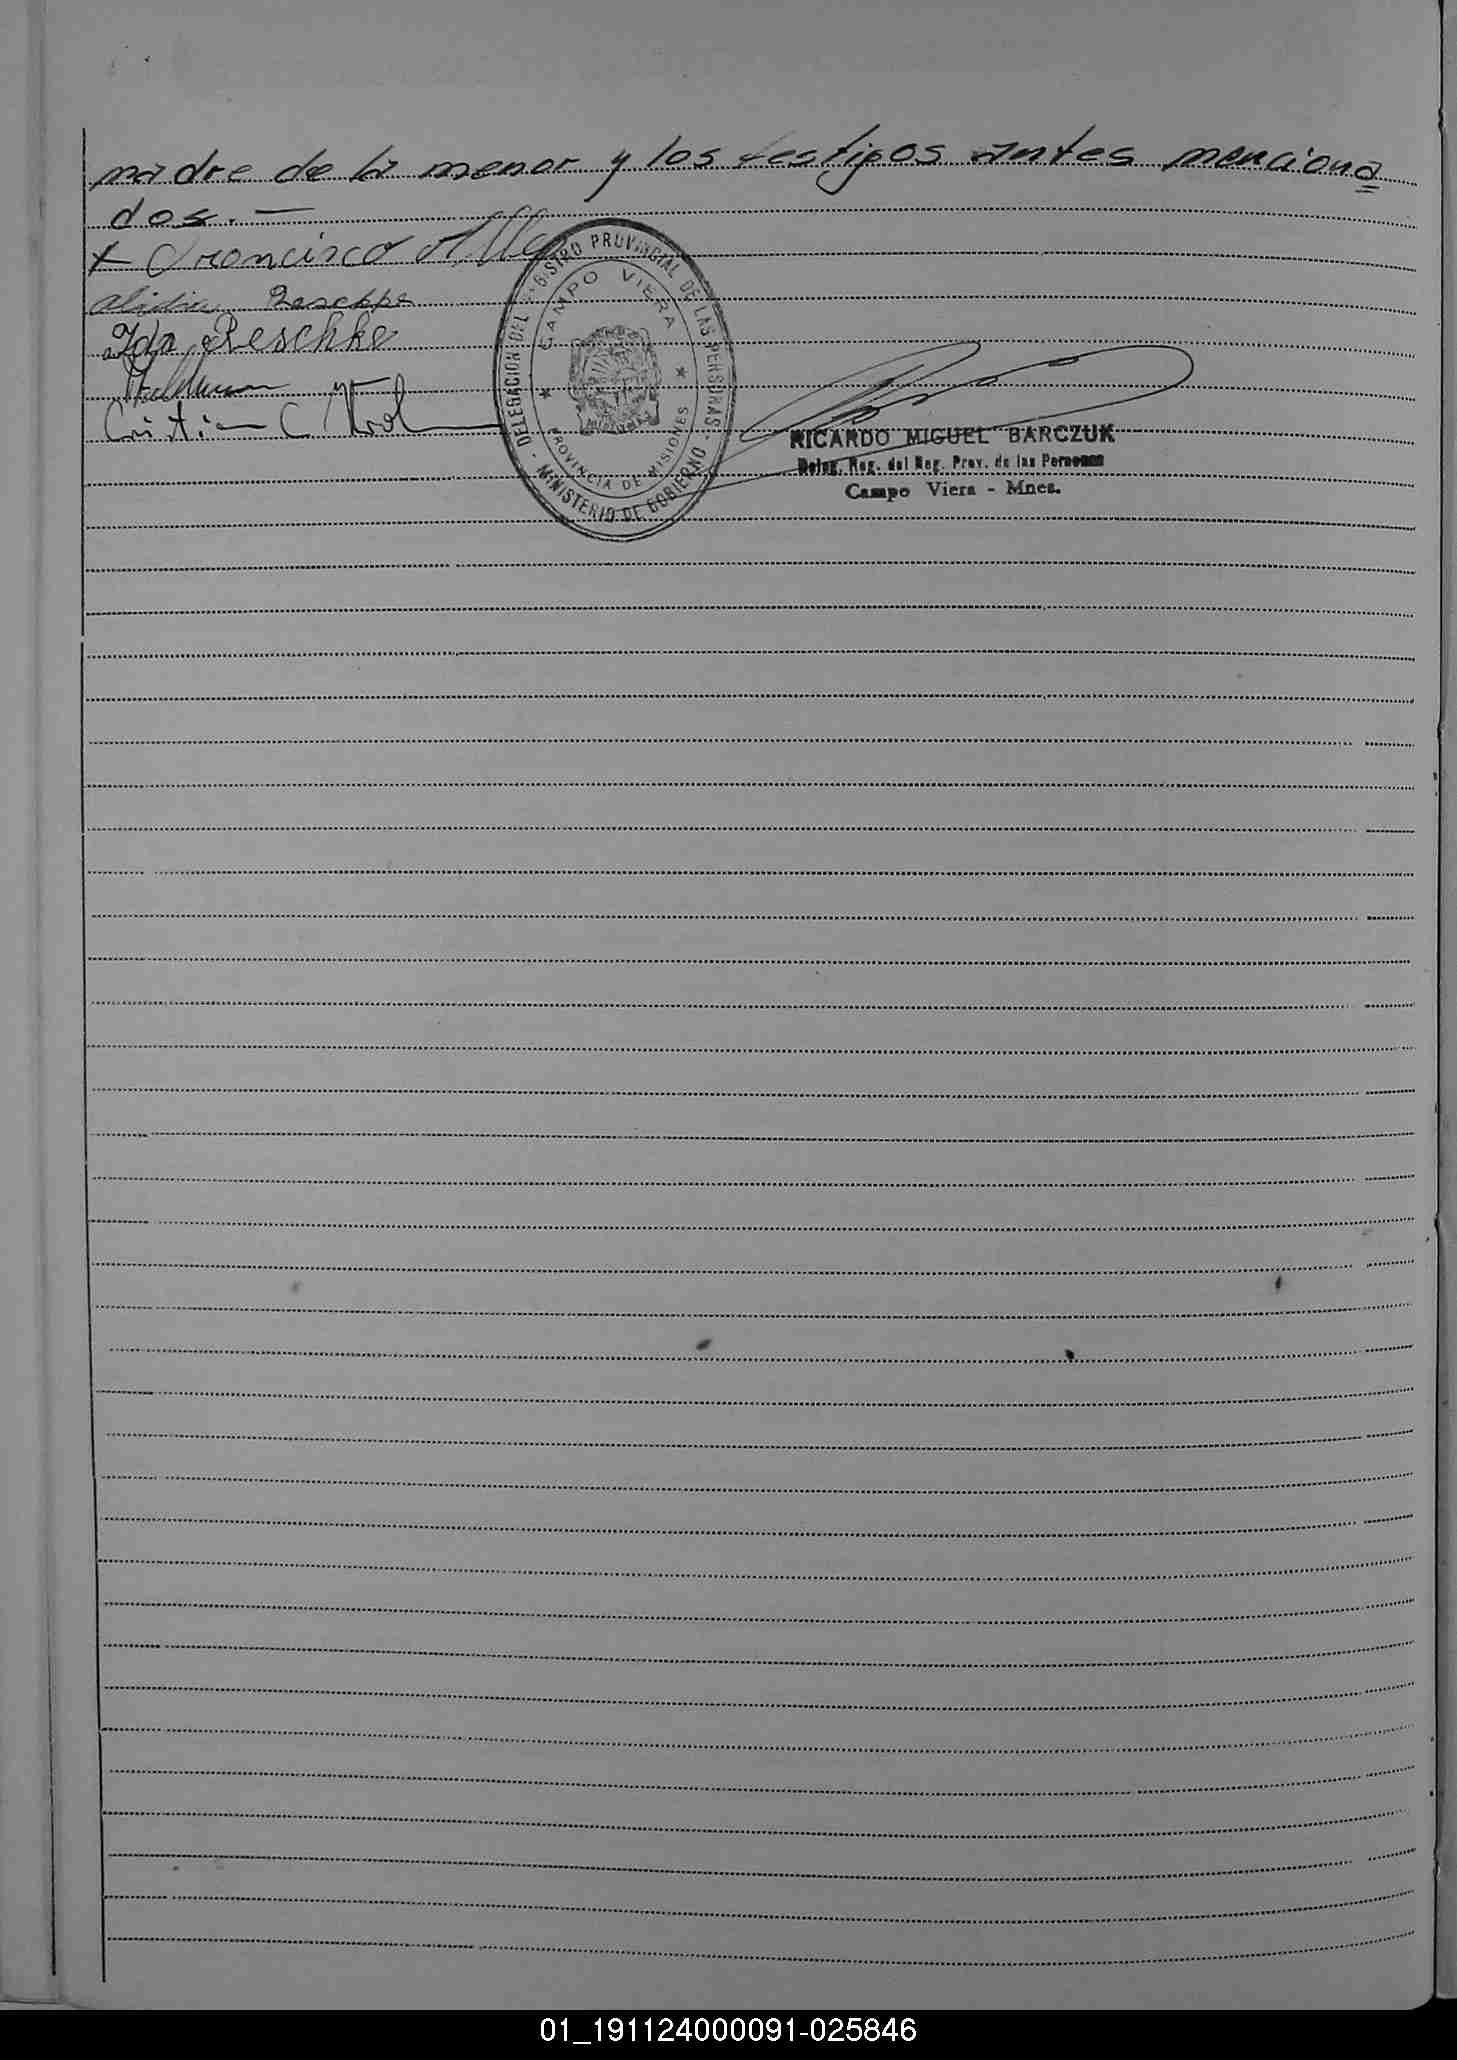 madre de la menor y los testigos antes menciona
dos. —
x Francisco
Reschke
Ida Reschke
Cristian C. Krol
DELEGACION DEL REGISTRO PROVINCIAL DE LAS PERSONAS -
- MINISTERIO DE GOBIERNO
* CAMPO VIERA *
PROVINCIA DE MISIONES
RICARDO MIGUEL BARCZUK
Deleg. Reg. del Reg. Prov. de las Personas
Campo Viera - Mnes.
01_191124000091-025846